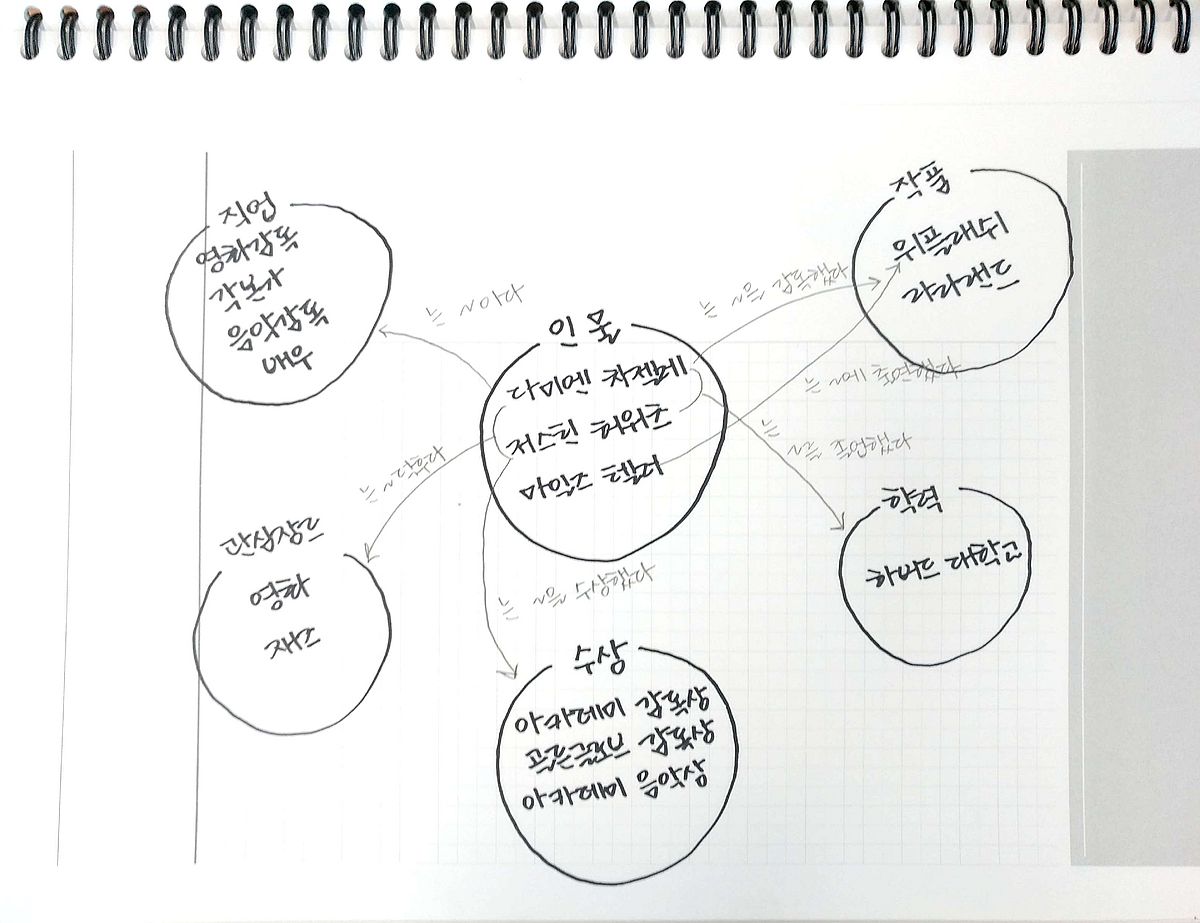 직업
영화감독
각본가
음악감독
배우
는 ~이다
인물
다미엔 차젤레
저스틴 허위츠
마일즈 텔러
작품
위플래쉬
라라랜드
는 ~을 감독했다
는 ~에 출연했다
는 ~를 졸업했다
학력
하버드 대학교
는 ~
관심장르
영화
재즈
는 ~을 수상했다
수상
아카데미 감독상
골든글로브 감독상
아카데미 음악상